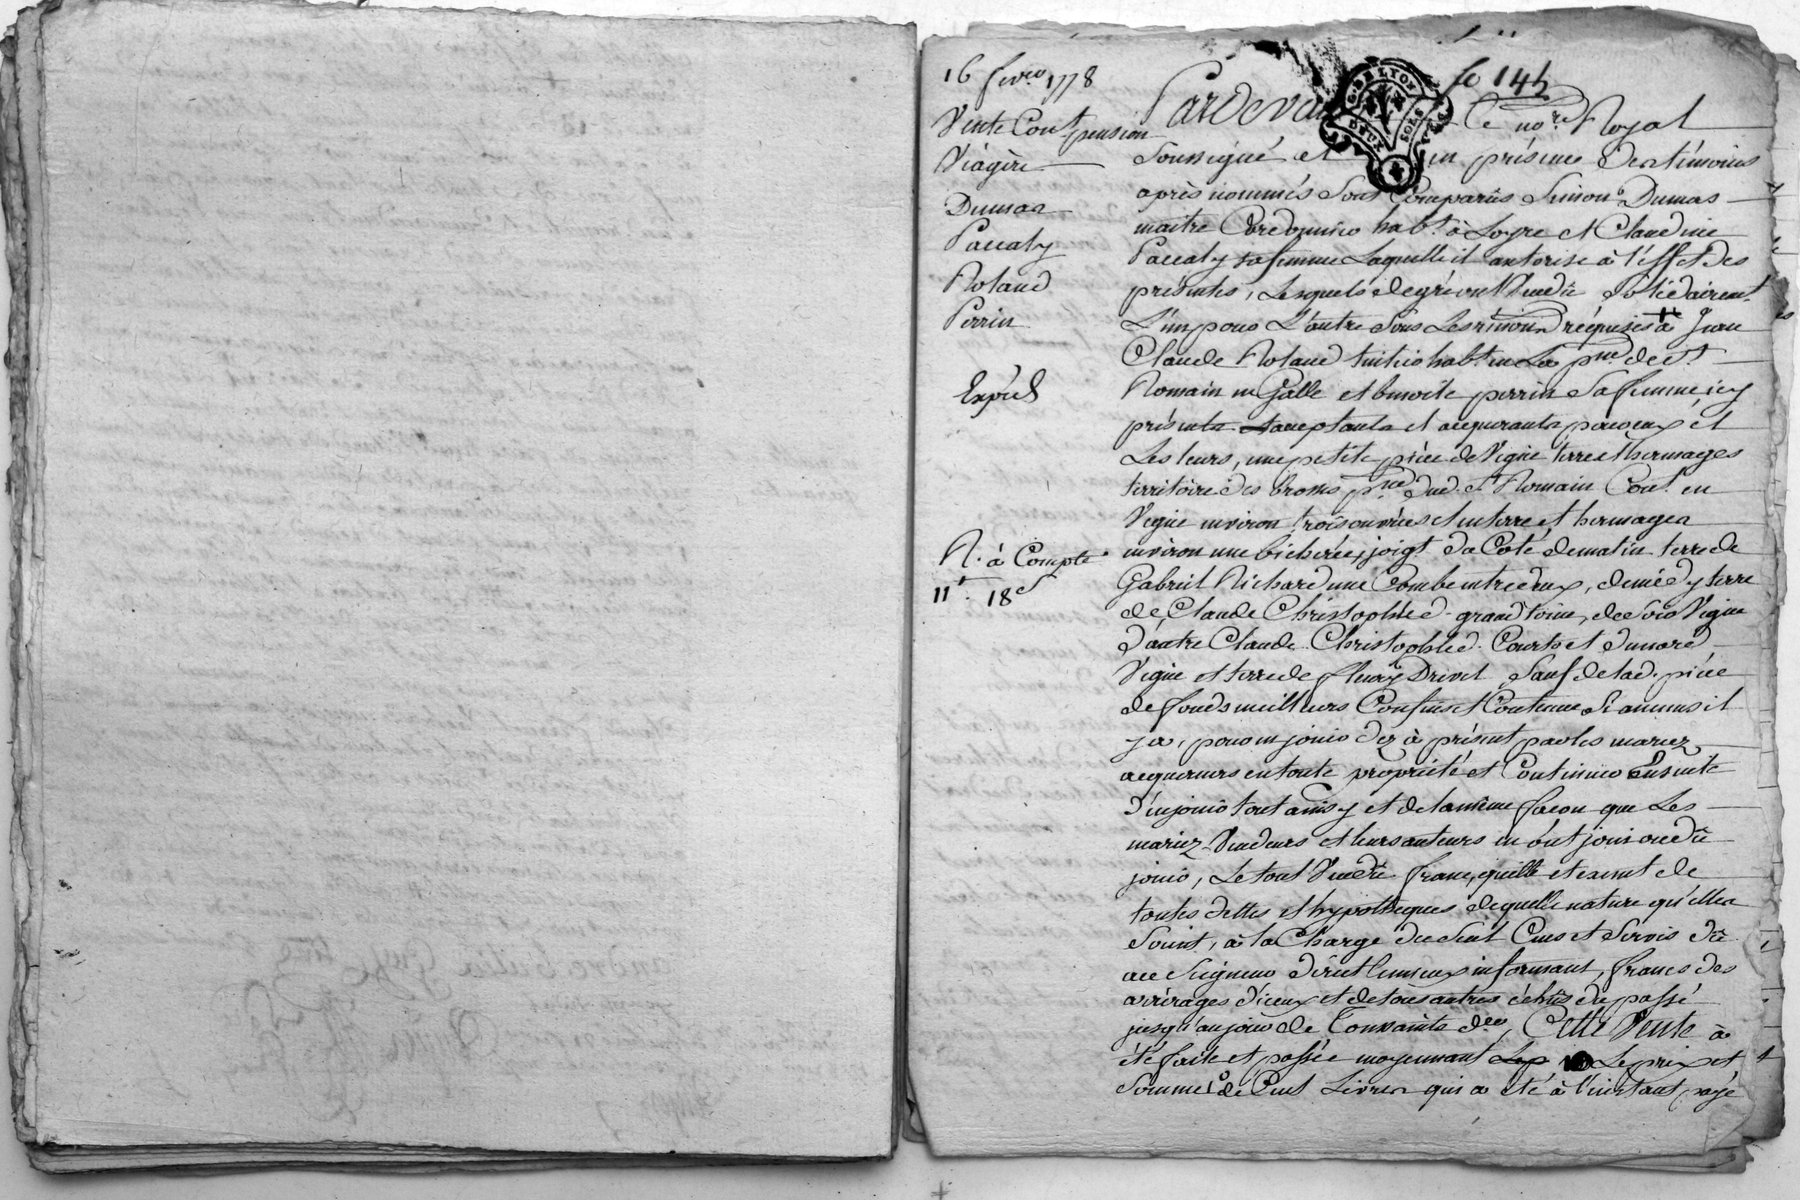 16 fevrier 1778
Vente Cont. pension
Viagère
Dumas
Paccaly
Roland
Perrin
Expéd
R. à Compte
11# 18s
fo 142
G. DE LYON
DEUX SOLS
Pardevant le nore Royal
soussigné et en présence des témoins
après nommés sont comparûs Simon Dumas
maitre Cordonnier habt. à Loyre et Claudine
Paccaly sa femme Laquelle il autorise à l'effet des
présentes, Lesquels de gré ont Vendû solidairemt.
L'un pour L'autre sous Les renon.ons réquises à Jean
Claude Roland habt. en La psse de St
Romain en Galle et benoite perrin sa femme icy
présents acceptants et acquerants pour eux et
Les leurs, une petite pièce de Vigne terre et hermages
territoire des brosses psse dud. St Romain Cont. en
Vigne environ trois ouvrées et en terre et hermages
environ une bicherée, joigt. du Coté de matin terre de
Gabriel Richard une Combe entre deux, de midy terre
de Claude Christophle d. grand toine, de soir Vigne
d'autre Claude Christophle d. Courtet et du nord
Vigne et terre de fleury Drivet sauf de lad. pièce
de fonds meilleurs Confins et Contenue si aucuns il
y a, pour en jouir dez à présent par les mariez
acquereurs en toute propriété et Continuer Ensuite
d'en jouir tout ainsy et de la même façon que Les
mariez Vendeurs et leurs auteurs en ont joui ou dû
jouir, Le tout Vendû franc, quitte et exempt de
toutes dettes et hypothèques de quelle nature qu'elles
soient, à la Charge du seul Cens et servis dû
au seigneur direct, francs des
arrérages d'iceux et de tous autres échûs du passé
jusqu'au jour de Toussaints der, Cette Vente a
été faite et passée moyennant Le prix et
somme de Cent Livres qui a été à l'instant payé